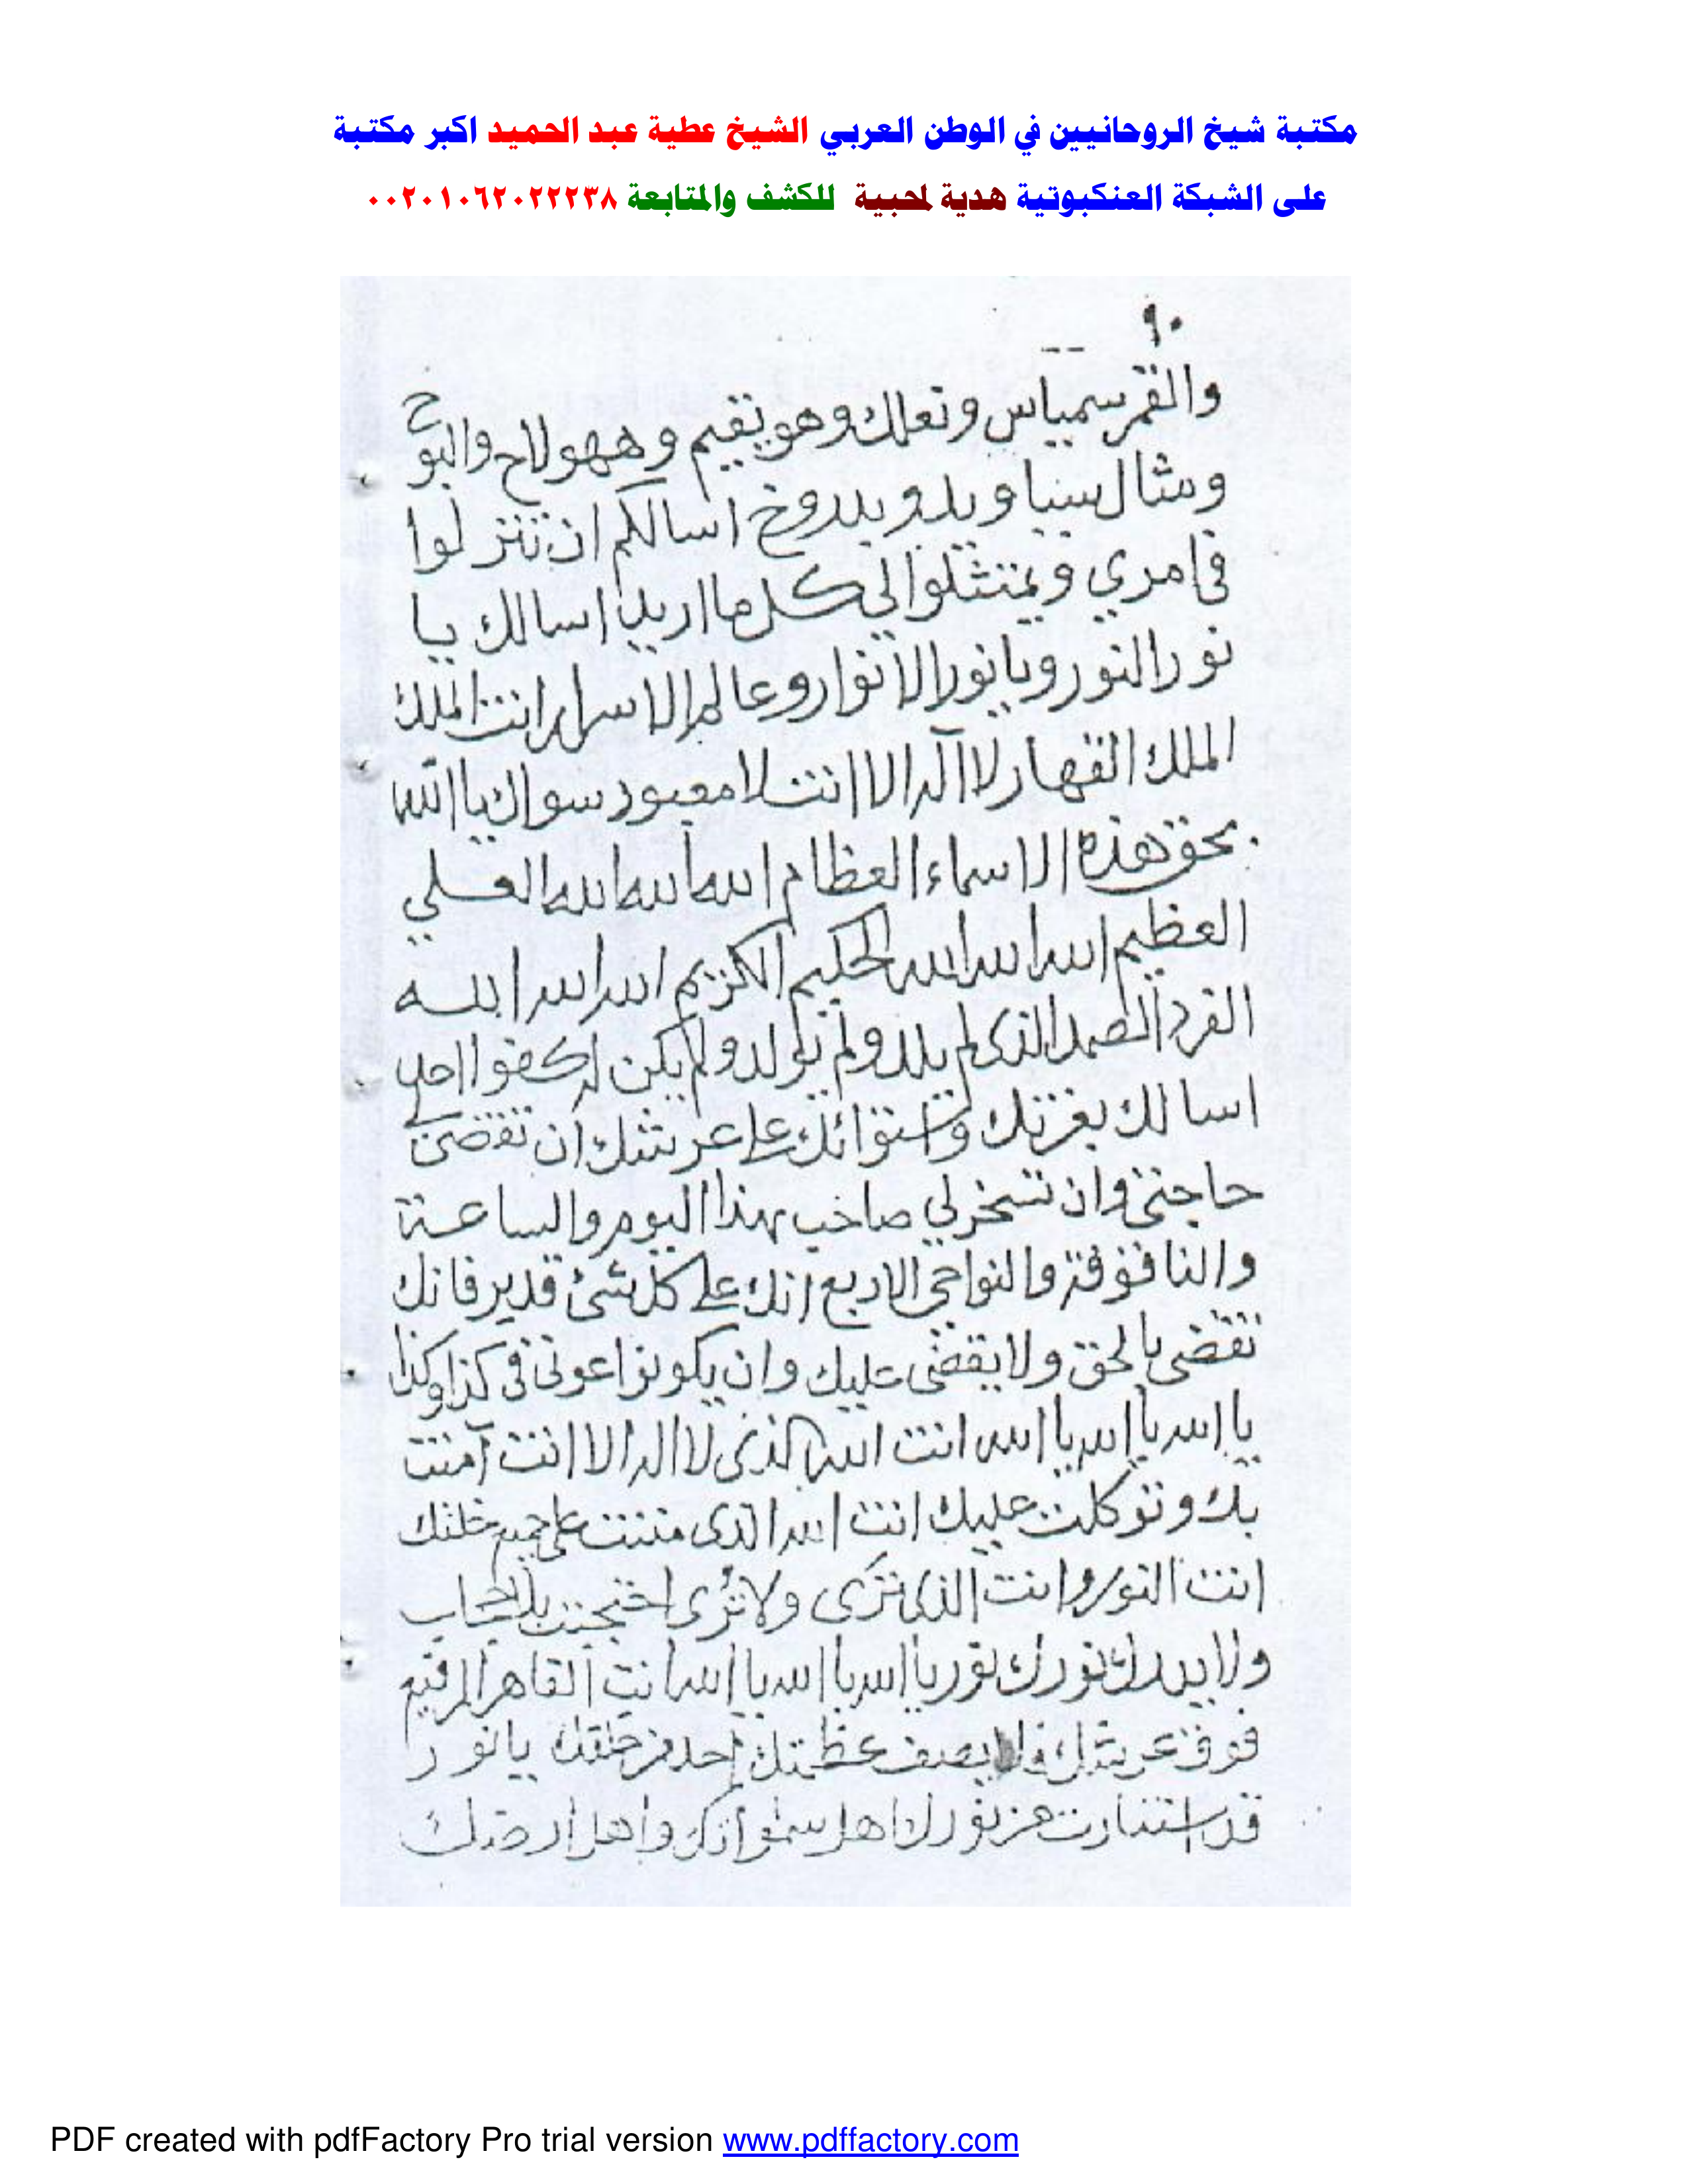 مكتبة شيخ الروحانيين في الوطن العربي الشيخ عطية عبد الحميد اكبر مكتبة
على الشبكة العنكبوتية هدية لمحبية للكشف والمتابعة ٠٠٢٠١٠٦٢٠٢٢٢٣٨
٩٠
والقمر سمياس و وهو يقيم و
ومثال اسالكم ان تنزلوا
في امري و يمتثلوا لي كل ما اريد اسالك يا
نور النور ويا نور الانوار وعالم الاسرار انت الملك
الملك القهار لا اله الا انت لا معبود سواك يا الله
بحق هذه الاسماء العظام الله الله الله العلي
العظيم الله الله الله الحكيم الكريم الله الله الله
الفرد الصمد الذى لم يلد ولم يولد ولم يكن له كفوا احد
اسالك بعزتك واستوائك على عرشك ان تقضى
حاجتى وان تسخر لي صاحب هذا اليوم والساعة
والنواحى الاربع انك على كل شئ قدير فانك
تقضى بالحق ولا يقضى عليك وان يكونوا عونى فى كذا وكذا
يا الله يا الله يا الله انت الله الذى لا اله الا انت آمنت
بك وتوكلت عليك انت الله الذى مننت على جميع خلقك
انت النور وانت الذى ترى ولا ترى احتجبت بالحجاب
ولا يدرك نورك نور يا الله يا الله يا الله انت القاهر الرفيع
فوق عرشك ولا يصف عظمتك احد من خلقك يا نور
قد استنارت من نورك اهل سمواتك واهل ارضك
PDF created with pdfFactory Pro trial version www.pdffactory.com